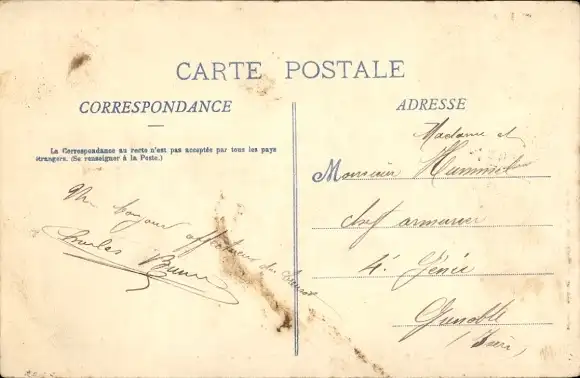 CARTE POSTALE
CORRESPONDANCE
La Correspondance au recto n'est pas acceptée par tous les pays
étrangers. (Se renseigner à la Poste.)
Un bonjour affectueux du
Charles
ADRESSE
Madame et
Monsieur Hummel
chef armurier
4e Génie
Grenoble
(Isère)